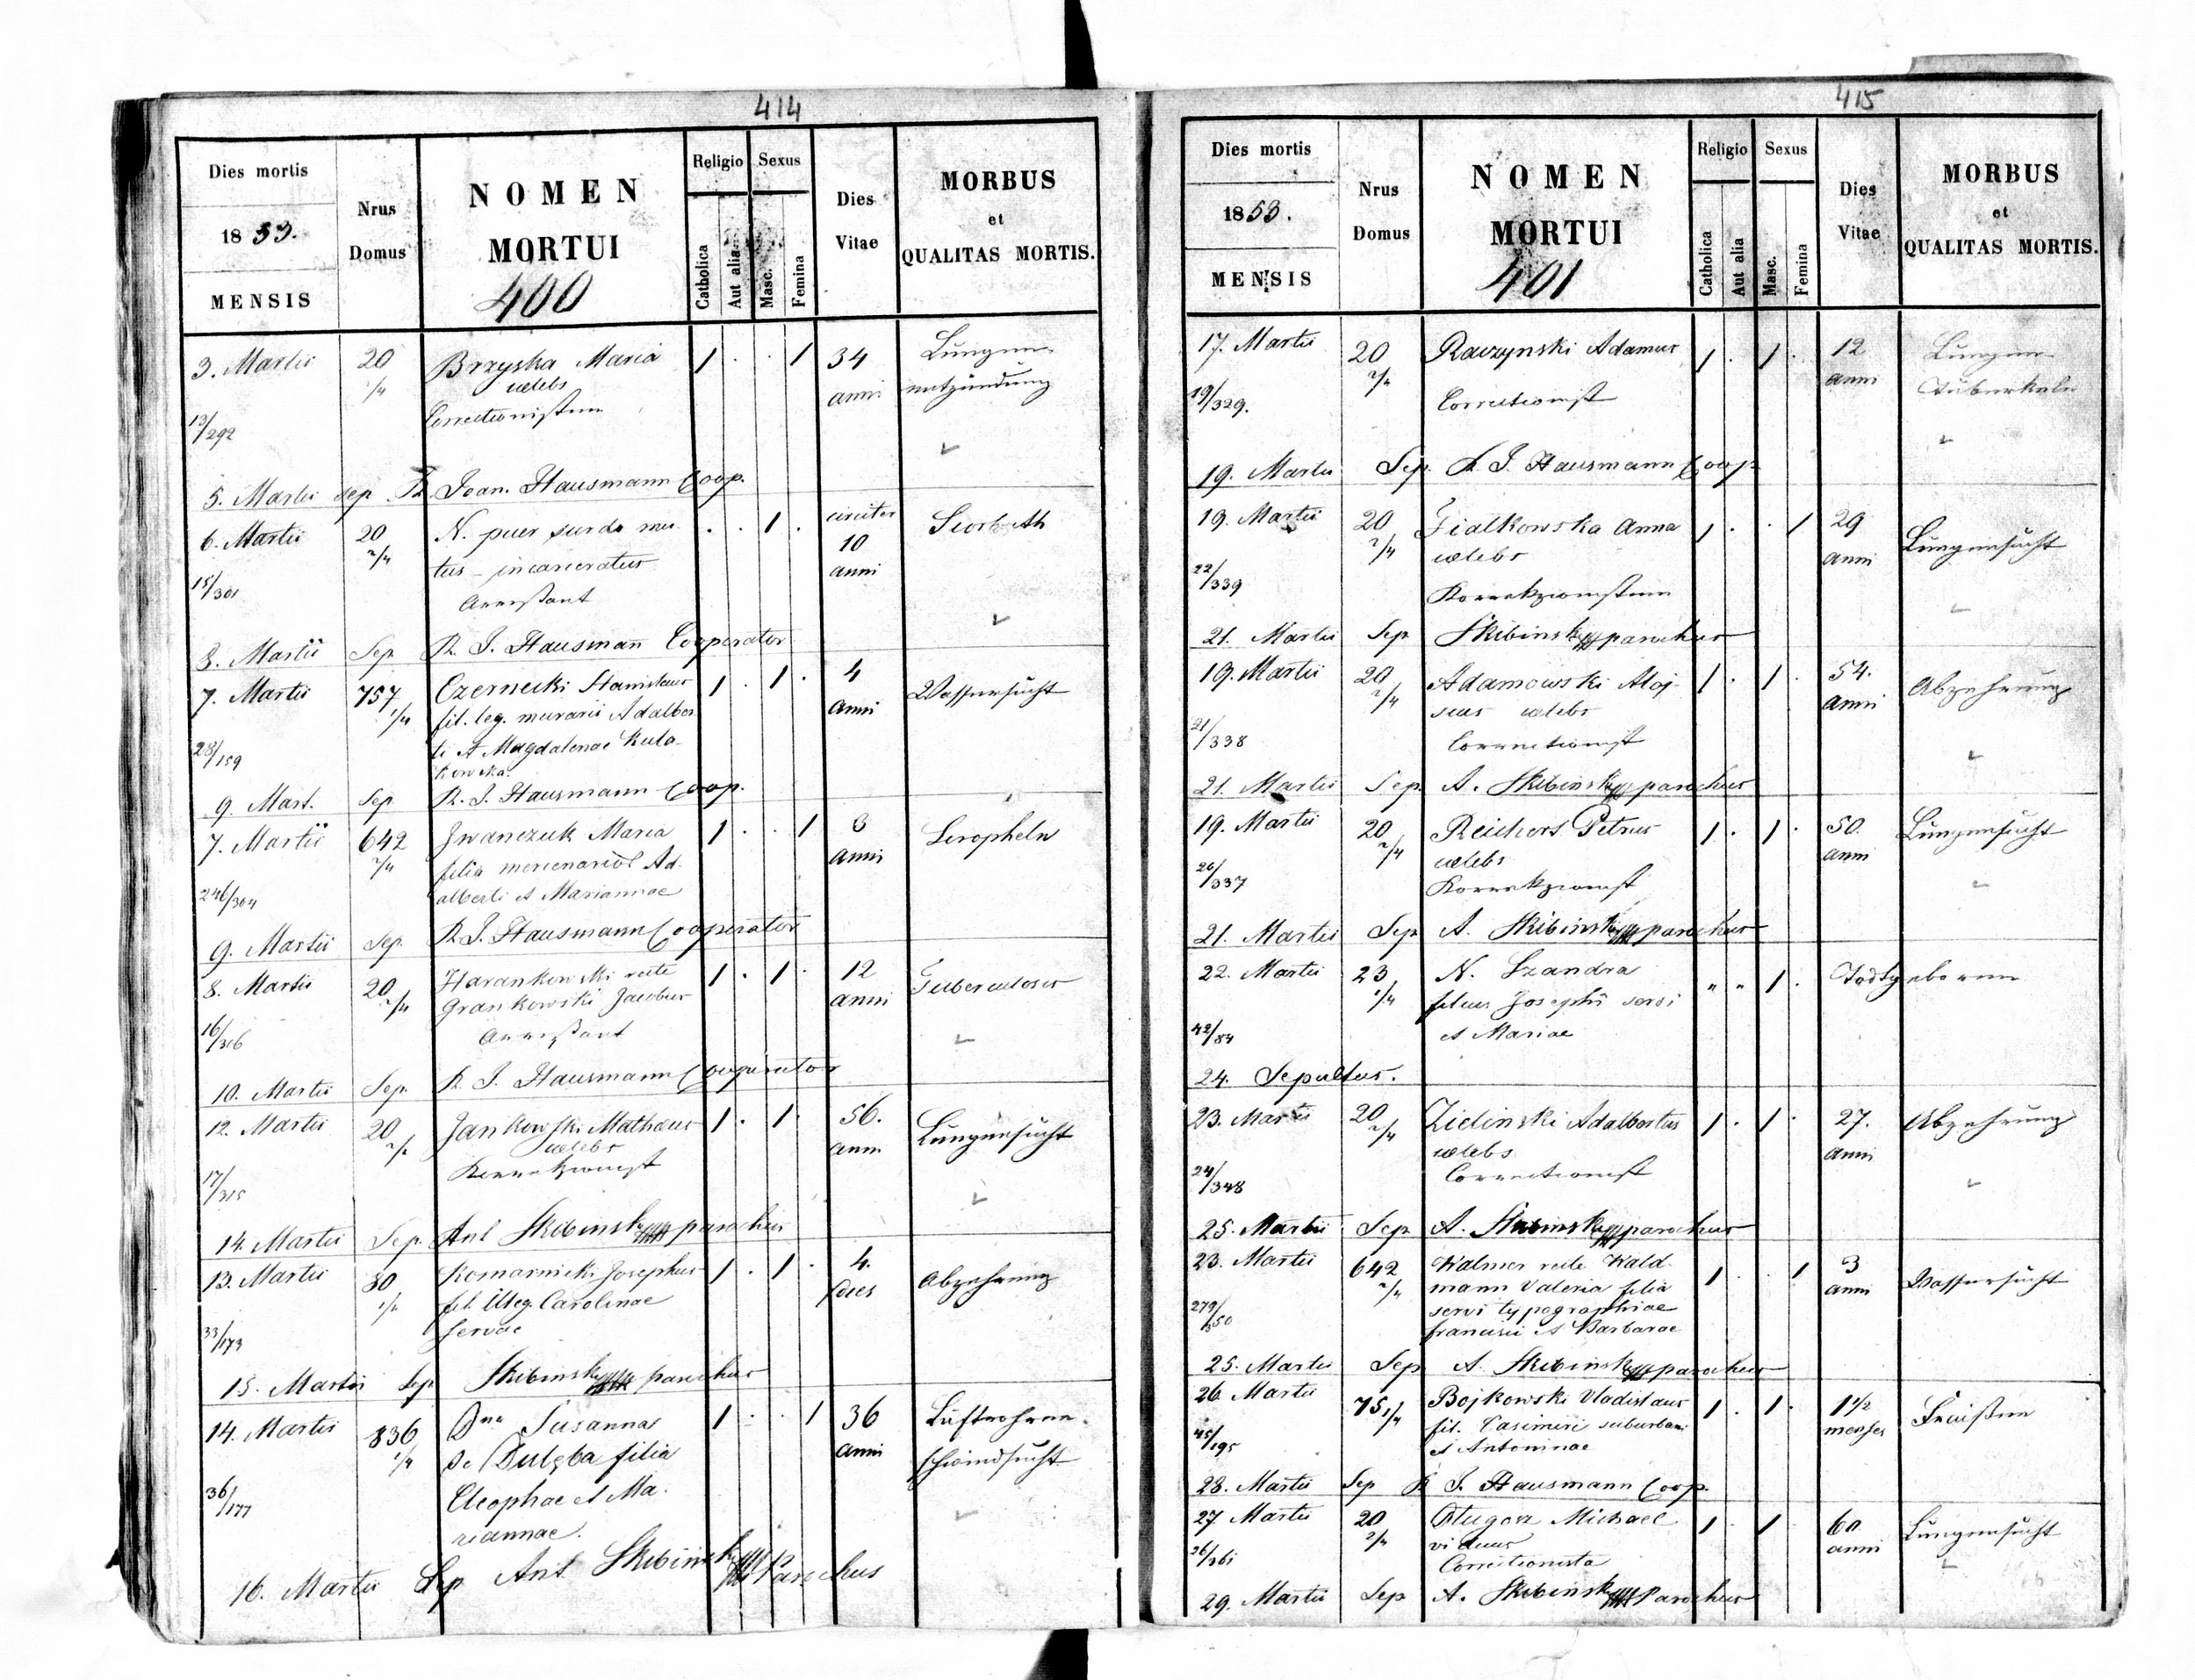 414
Dies mortis
1853.
MENSIS
Nrus
Domus
NOMEN
MORTUI
400
Religio
Sexus
Catholica
Aut alia
Masc.
Femina
Dies
Vitae
MORBUS
et
QUALITAS MORTIS.
3. Martii 20 Brzyska Maria 1 . . 1 34 Lungen-
1/4 caelebs anni entzündung
Correctionistin
13/292
5. Martii Sep. R. Joan. Hausmann Coop.
6. Martii 20 N. puer surdo mu . . 1 . circiter Scorbuth
2/4 tus - incarceratus 10
15/301 Arrestant anni
8. Martii Sep R. J. Hausmann Cooperator
7. Martii 757 Czernecki Stanislaus 1 . 1 . 4 Wassersucht
1/4 fil. leg. murarii Adalber anni
28/159 ti et Magdalenae Kula-
kowska.
9. Mart. Sep R. J. Hausmann Coop.
7. Martii 642 Iwanczuk Maria 1 . . 1 3 Scropheln
2/4 filia mercenarior Ad anni
246/304 alberti et Mariannae
9. Martii Sep. R. J. Hausmann Cooperator
8. Martii 20 Harankowski recte 1 . 1 . 12 Tuberculoser
2/4 Grankowski Jacobus anni
16/306 Arrestant
10. Martii Sep. R. J. Hausmann Cooperator
12. Martii 20 Jankowski Mathaeus 1 . 1 . 56. Lungensucht
2/4 caelebs anni
17/315 Korrekzionist
14. Martii Sep. Ant Skibinski parochus
13. Martii 80 Komarnicki Josephus 1 . 1 . 4. Abzehrung
1/4 fil. illeg. Carolinae dies
33/173 servae
15. Martii Sep Skibinski parochus
14. Martii 836 Dna Susanna 1 . . 1 36 Luftrohren-
1/4 de Dulęba filia anni schwindsucht
36/177 Cleophae et Ma-
riannae.
16. Martii Sep Ant Skibinski Parochus
415
Dies mortis
1853.
MENSIS
Nrus
Domus
NOMEN
MORTUI
401
Religio
Sexus
Catholica
Aut alia
Masc.
Femina
Dies
Vitae
MORBUS
et
QUALITAS MORTIS.
17. Martii 20 Raczynski Adamus 1 . 1 . 12 Lungen-
2/4 anni Tuberkeln
19/329. Correctionist
19. Martii Sep. R. J. Hausmann Coop
19. Martii 20 Fialkowska Anna 1 . . 1 29 Lungensucht
2/4 caelebs anni
22/339 Korrekzionistin
21. Martii Sep Skibinski parochus
19. Martii 20 Adamowski Aloj- 1 . 1 . 54. Abzehrung
2/4 sius caelebs anni
21/338 Correctionist
21. Martii Sep. A. Skibinski parochus
19. Martii 20 Reichert Petrus 1 . 1 . 50. Lungensucht
2/4 caelebs anni
20/337 Korrekzionist
21. Martii Sep A. Skibinski parochus
22. Martii 23 N. Szandra " " 1 . Todtgeboren
1/4 filius Josephi servi
42/84 et Mariae
24. Sepultus.
23. Martii 20 Zielinski Adalbertus 1 . 1 . 27. Abzehrung
2/4 caelebs anni
24/348 Correctionist
25. Martii Sep A. Skibinski parochus
23. Martii 642 Walmer recte Wald- 1 . . 1 3 Wassersucht
2/4 mann Valeria filia anni
279/350 servi typographiae
francisci et Barbarae
25. Martii Sep A. Skibinski parochus
26. Martii 75 1/4 Bojkowski Vladislaus 1 . 1 . 1 1/2 Fraißen
fil. Casimiri suburbani menses
45/195 et Antoninae
28. Martii Sep R J. Hausmann Coop.
27 Martii 20 Dlugosz Michael 1 . 1 60 Lungensucht
2/4 viduus anni
26/361 Correctionista
29. Martii Sep A. Skibinski Parochus